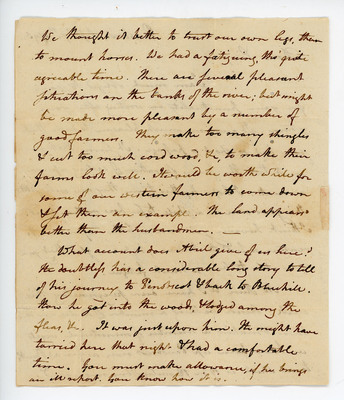 We thought it better to trust our own legs, than
to mount horses. We had a fatiguing, tho' quite
agreeable time. There are several pleasant
situations on the banks of the river; but might
be made more pleasant by a number of
good farmers. They make too many shingles
& cut too much cord wood, &c, to make their
farms look well. It would be worth while for
some of our western farmers to come down
& set them an example. The land appears
better than the husbandmen. —
What account does Abiel give of us here?
He doubtless has a considerable long story to tell
of his journey to Penobscot & back to Bluehill.
How he got into the woods, & lodged among the
fleas, &c. It was just upon him. He might have
tarried here that night & had a comfortable
time. You must make allowance, if he brings
an ill report. You know how it is.